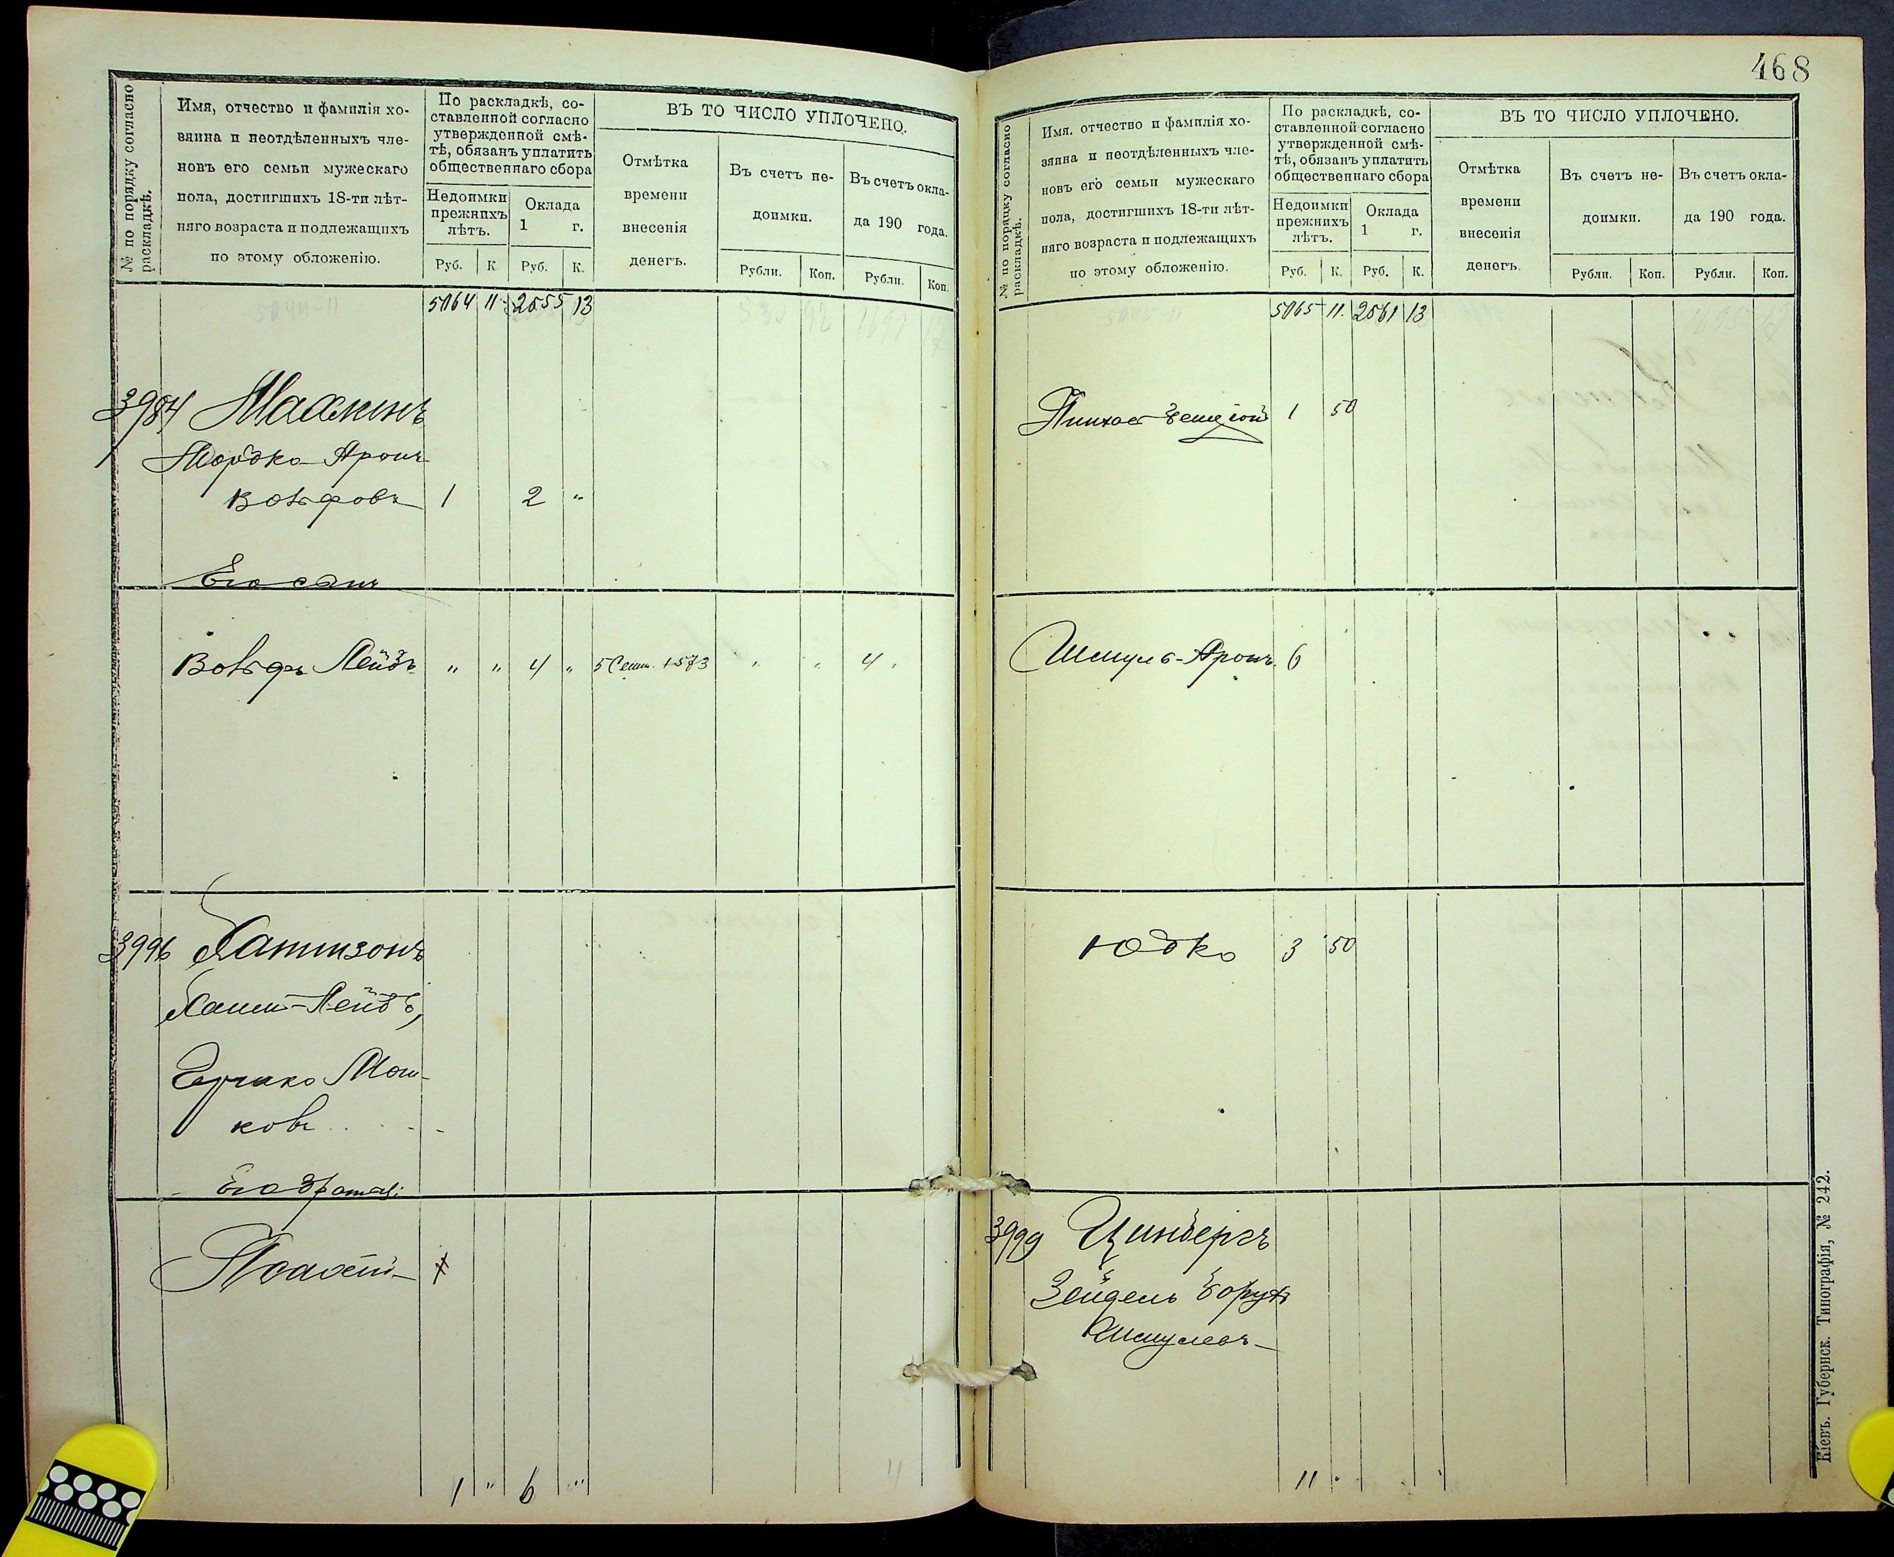 № по порядку согласно
раскладкѣ.
Имя, отчество и фамилія хо-
зяина и неотдѣленныхъ чле-
новъ его семьи мужескаго
пола, достигшихъ 18-ти лѣт-
няго возраста и подлежащихъ
по этому обложенію.
По раскладкѣ, со-
ставленной согласно
утвержденной смѣ-
тѣ, обязанъ уплатить
общественнаго сбора
Недоимки
прежнихъ
лѣтъ.
Оклада
1 г.
Руб. К. Руб. К.
ВЪ ТО ЧИСЛО УПЛОЧЕНО.
Отмѣтка
времени
внесенія
денегъ.
Въ счетъ не-
доимки.
Рубли. Коп.
Въ счетъ окла-
да 190 года.
Рубли. Коп.
5064 11 2555 13
3984 Маалинъ
Мордко-Аронъ
Вольфовъ 1 2 "
Его сынъ
Вольфъ Лейбъ " " 4 " 5 Сент. 1573 " " 4 "
3996 Хаимзонъ
Хаим-Лейбъ,
Гершко Мош-
ковъ
Его братья:
1 " 6 "
468
№ по порядку согласно
раскладкѣ.
Имя, отчество и фамилія хо-
зяина и неотдѣленныхъ чле-
новъ его семьи мужескаго
пола, достигшихъ 18-ти лѣт-
няго возраста и подлежащихъ
по этому обложенію.
По раскладкѣ, со-
ставленной согласно
утвержденной смѣ-
тѣ, обязанъ уплатить
общественнаго сбора
Недоимки
прежнихъ
лѣтъ.
Оклада
1 г.
Руб. К. Руб. К.
ВЪ ТО ЧИСЛО УПЛОЧЕНО.
Отмѣтка
времени
внесенія
денегъ.
Въ счетъ не-
доимки.
Рубли. Коп.
Въ счетъ окла-
да 190 года.
Рубли. Коп.
5065 11 2561 13
Пинхас 1 50
Шмуль-Аронъ 6
Юдко 3 50
3999 Цинбергъ
Зейдель Борухъ
Шмулевъ
11
Кіевъ. Губернск. Типографія, № 242.